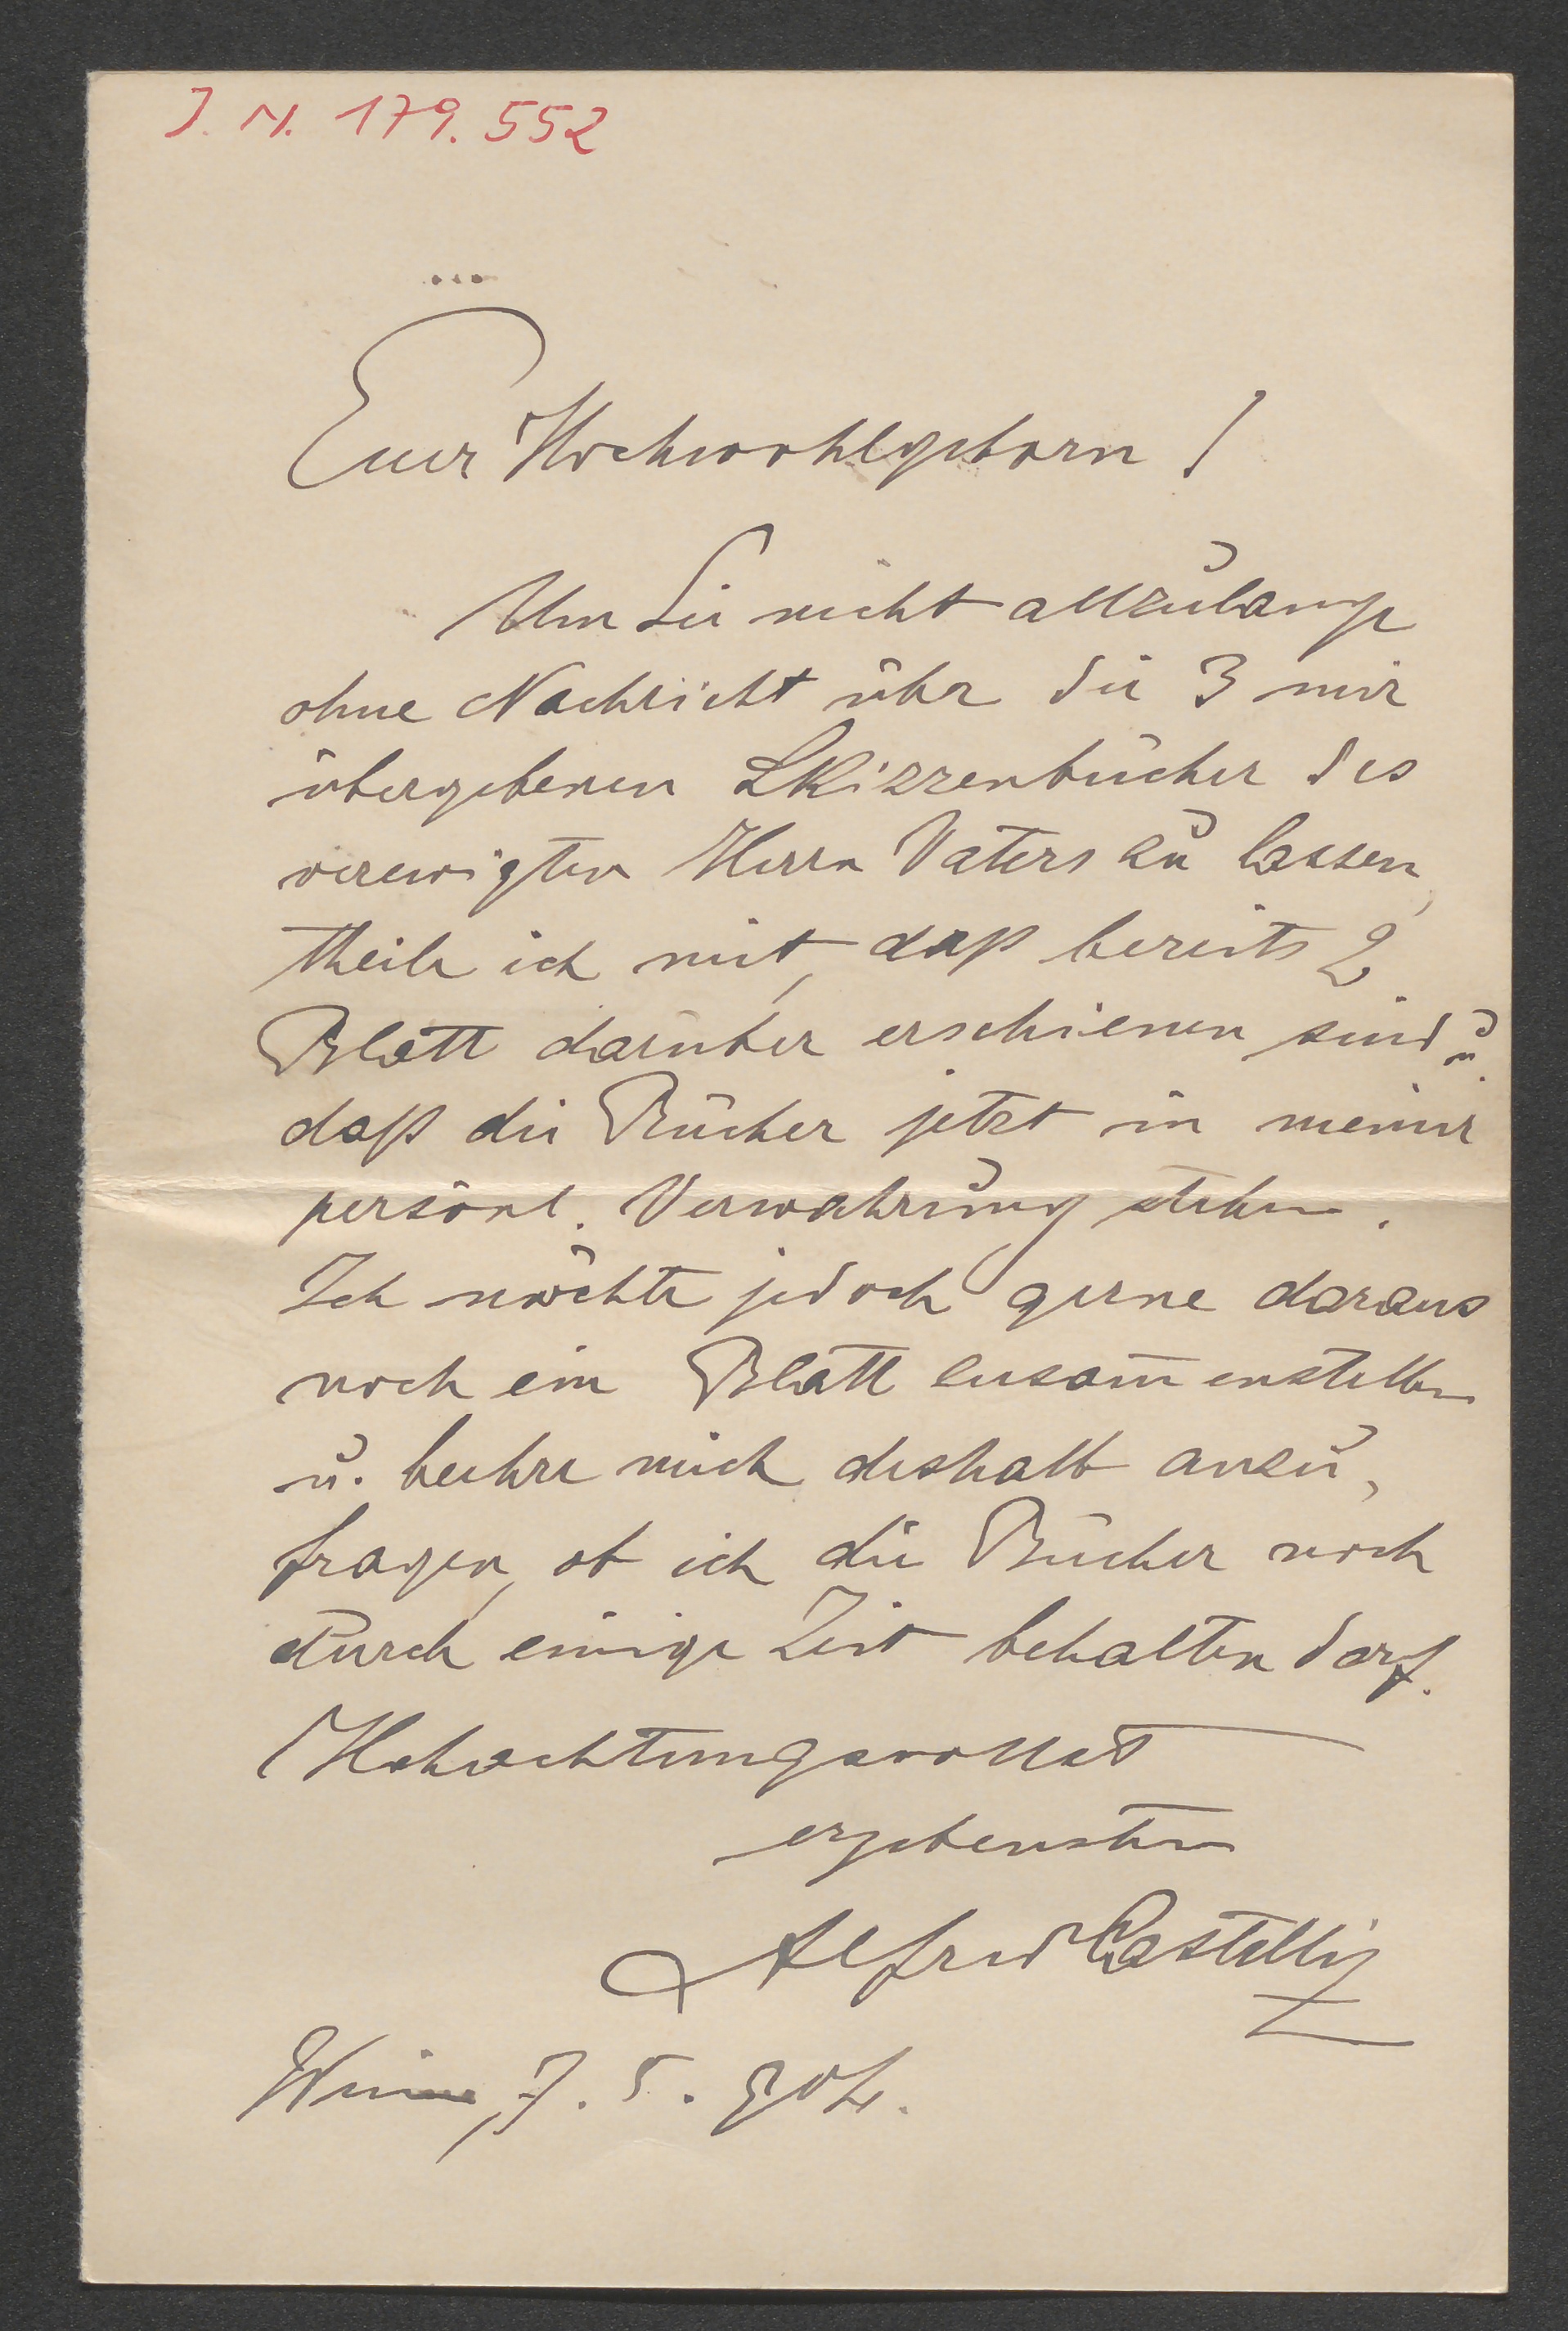 J. N. 179.552
Euer Hochwohlgeborn!
Um Sie nicht allzulange
ohne Nachricht über die 3 mir
übergebenen Skizzenbücher des
verewigten Herrn Vaters zu lassen,
theile ich mit, daß bereits 2
Blatt darüber erschienen sind u.
daß die Bücher jetzt in meiner
persönl. Verwahrung stehen.
Ich möchte jedoch gerne daraus
noch ein Blatt zusam̅enstellen
u. beehre mich deshalb anzu,
fragen, ob ich die Bücher noch
durch einige Zeit behalten darf.
Hochachtungsvollst
ergebenster
Alfred Castelliz
Wien, 7. 5. 904.